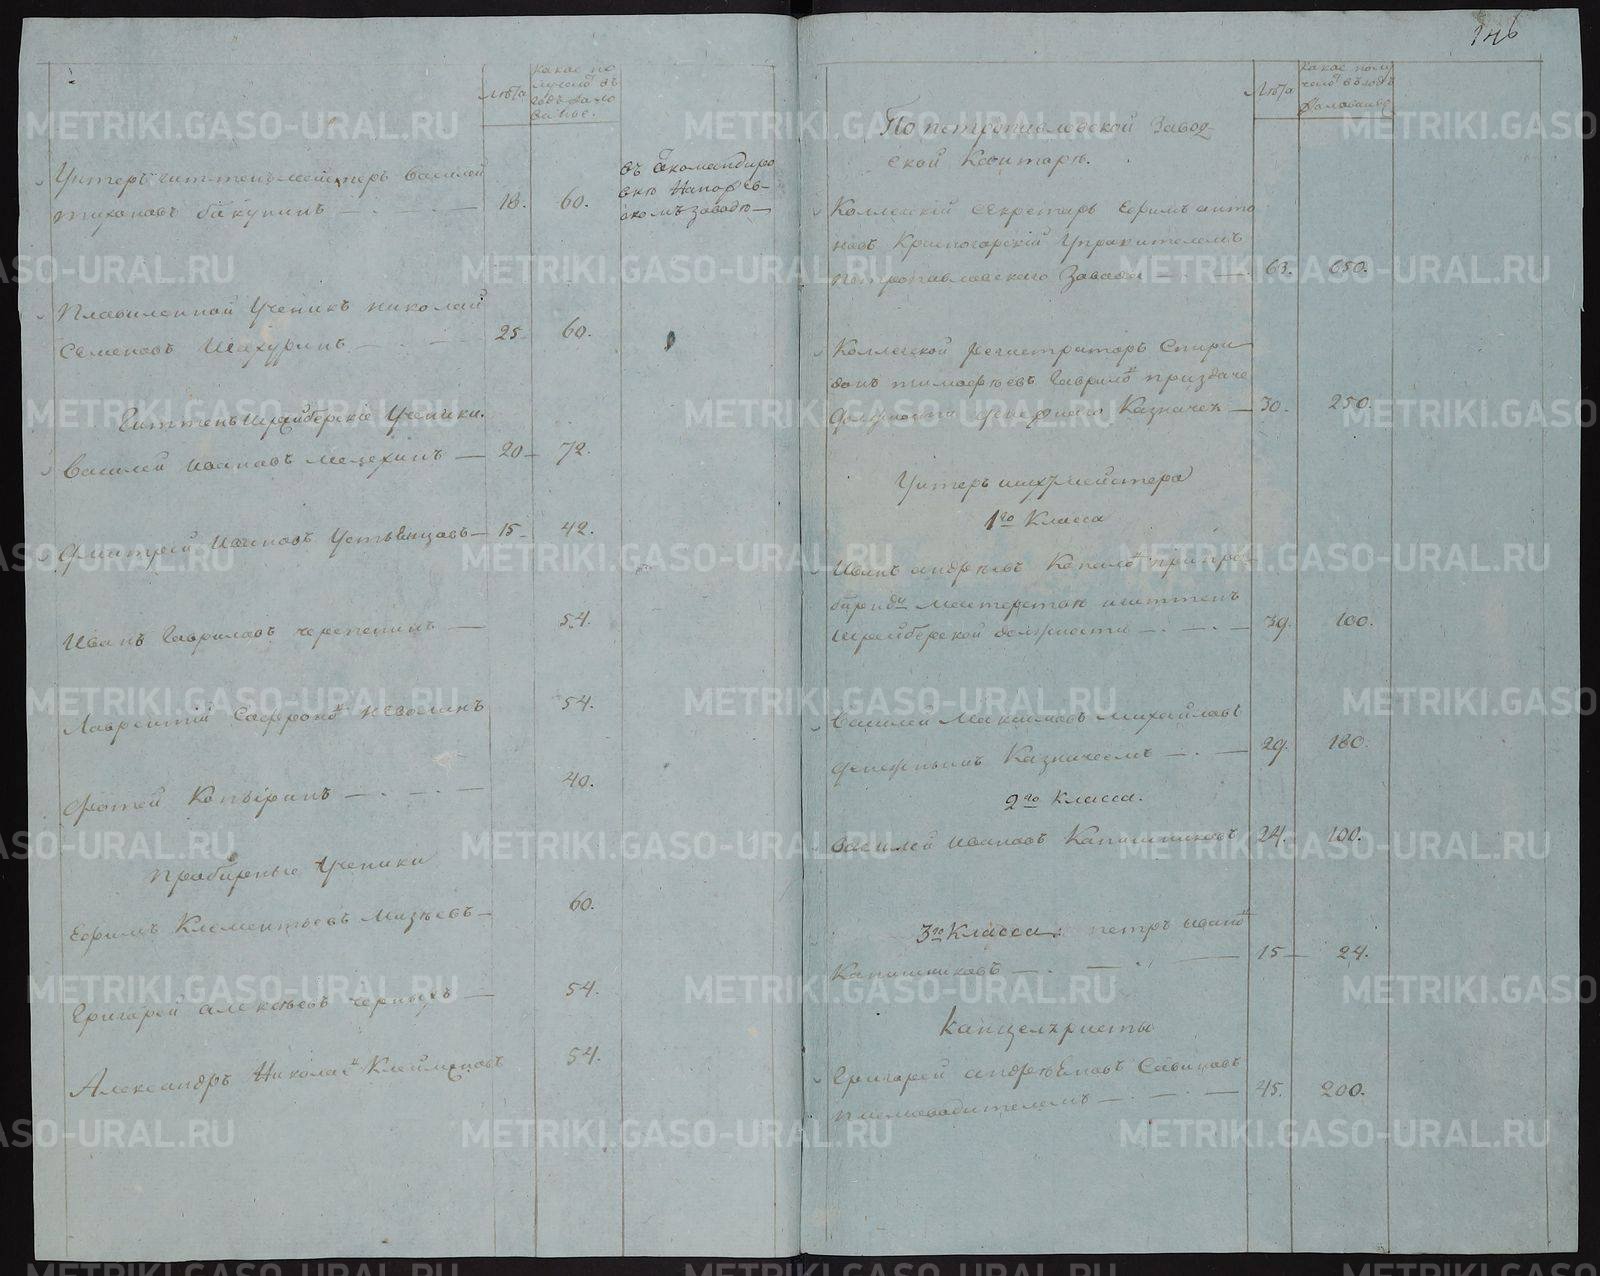 Лѣта
какое по
лучаетъ въ
годъ жало
ванье.
Унтеръ гиттенъ мейстеръ Василей
Тихоновъ Бакунинъ — 18. 60.
въ
скомъ заводѣ —
Плавиленной ученикъ Николай
Семеновъ Шахуринъ — 25 60.
Гиттенъ шрейберскіе ученики.
Василей Ивановъ Мелехинъ — 20 — 72.
Дмитрей Ивановъ Устьянцовъ — 15 — 42.
Иванъ Гавриловъ Черепенинъ — 54.
Лаврентій Сафроно въ Неволинъ 54.
Фотей Копыринъ — 40.
Пробирные ученики
Ефимъ Клементьевъ Мизѣевъ — 60.
Григорей Алексѣевъ Черныхъ — 54.
Александръ Никола Клеймёновъ 54.
146
Лѣта
какое полу
чаетъ въ годъ
жалованье
По петропавловской завод
ской Конторѣ.
Коллежскій секретарь Ефимъ Анто
новъ Красногорскій управителемъ
петропавловскаго завода — 63. 650.
Коллежской регистраторъ Спири
донъ Тимофѣевъ Гаврило
должности денежнаго Казначея — 30. 250.
Унтеръ шихтмейстера
1го Класса
Иванъ Андрѣевъ при про
гиттенъ
шрейберской должности — 39. 100.
Василей Максимовъ Михайловъ
денежнымъ Казначеемъ — 29. 180.
2го класса.
Василей Ивановъ Капишниковъ 24. 100.
3го Класса: Петръ Ивано
Капишниковъ — 15 — 24.
Канцеляристы
Григорей Савиновъ
писмоводителемъ — 45. 200.
METRIKI.GASO-URAL.RU